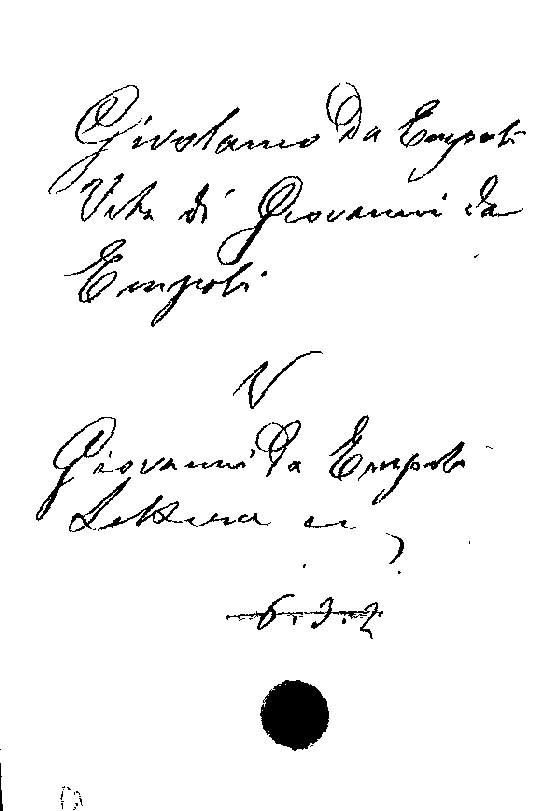 Girolamo Da Empoli
Vita di Giovanni da
Empoli
V
Giovanni Da Empoli
Lettera a
6.3.2